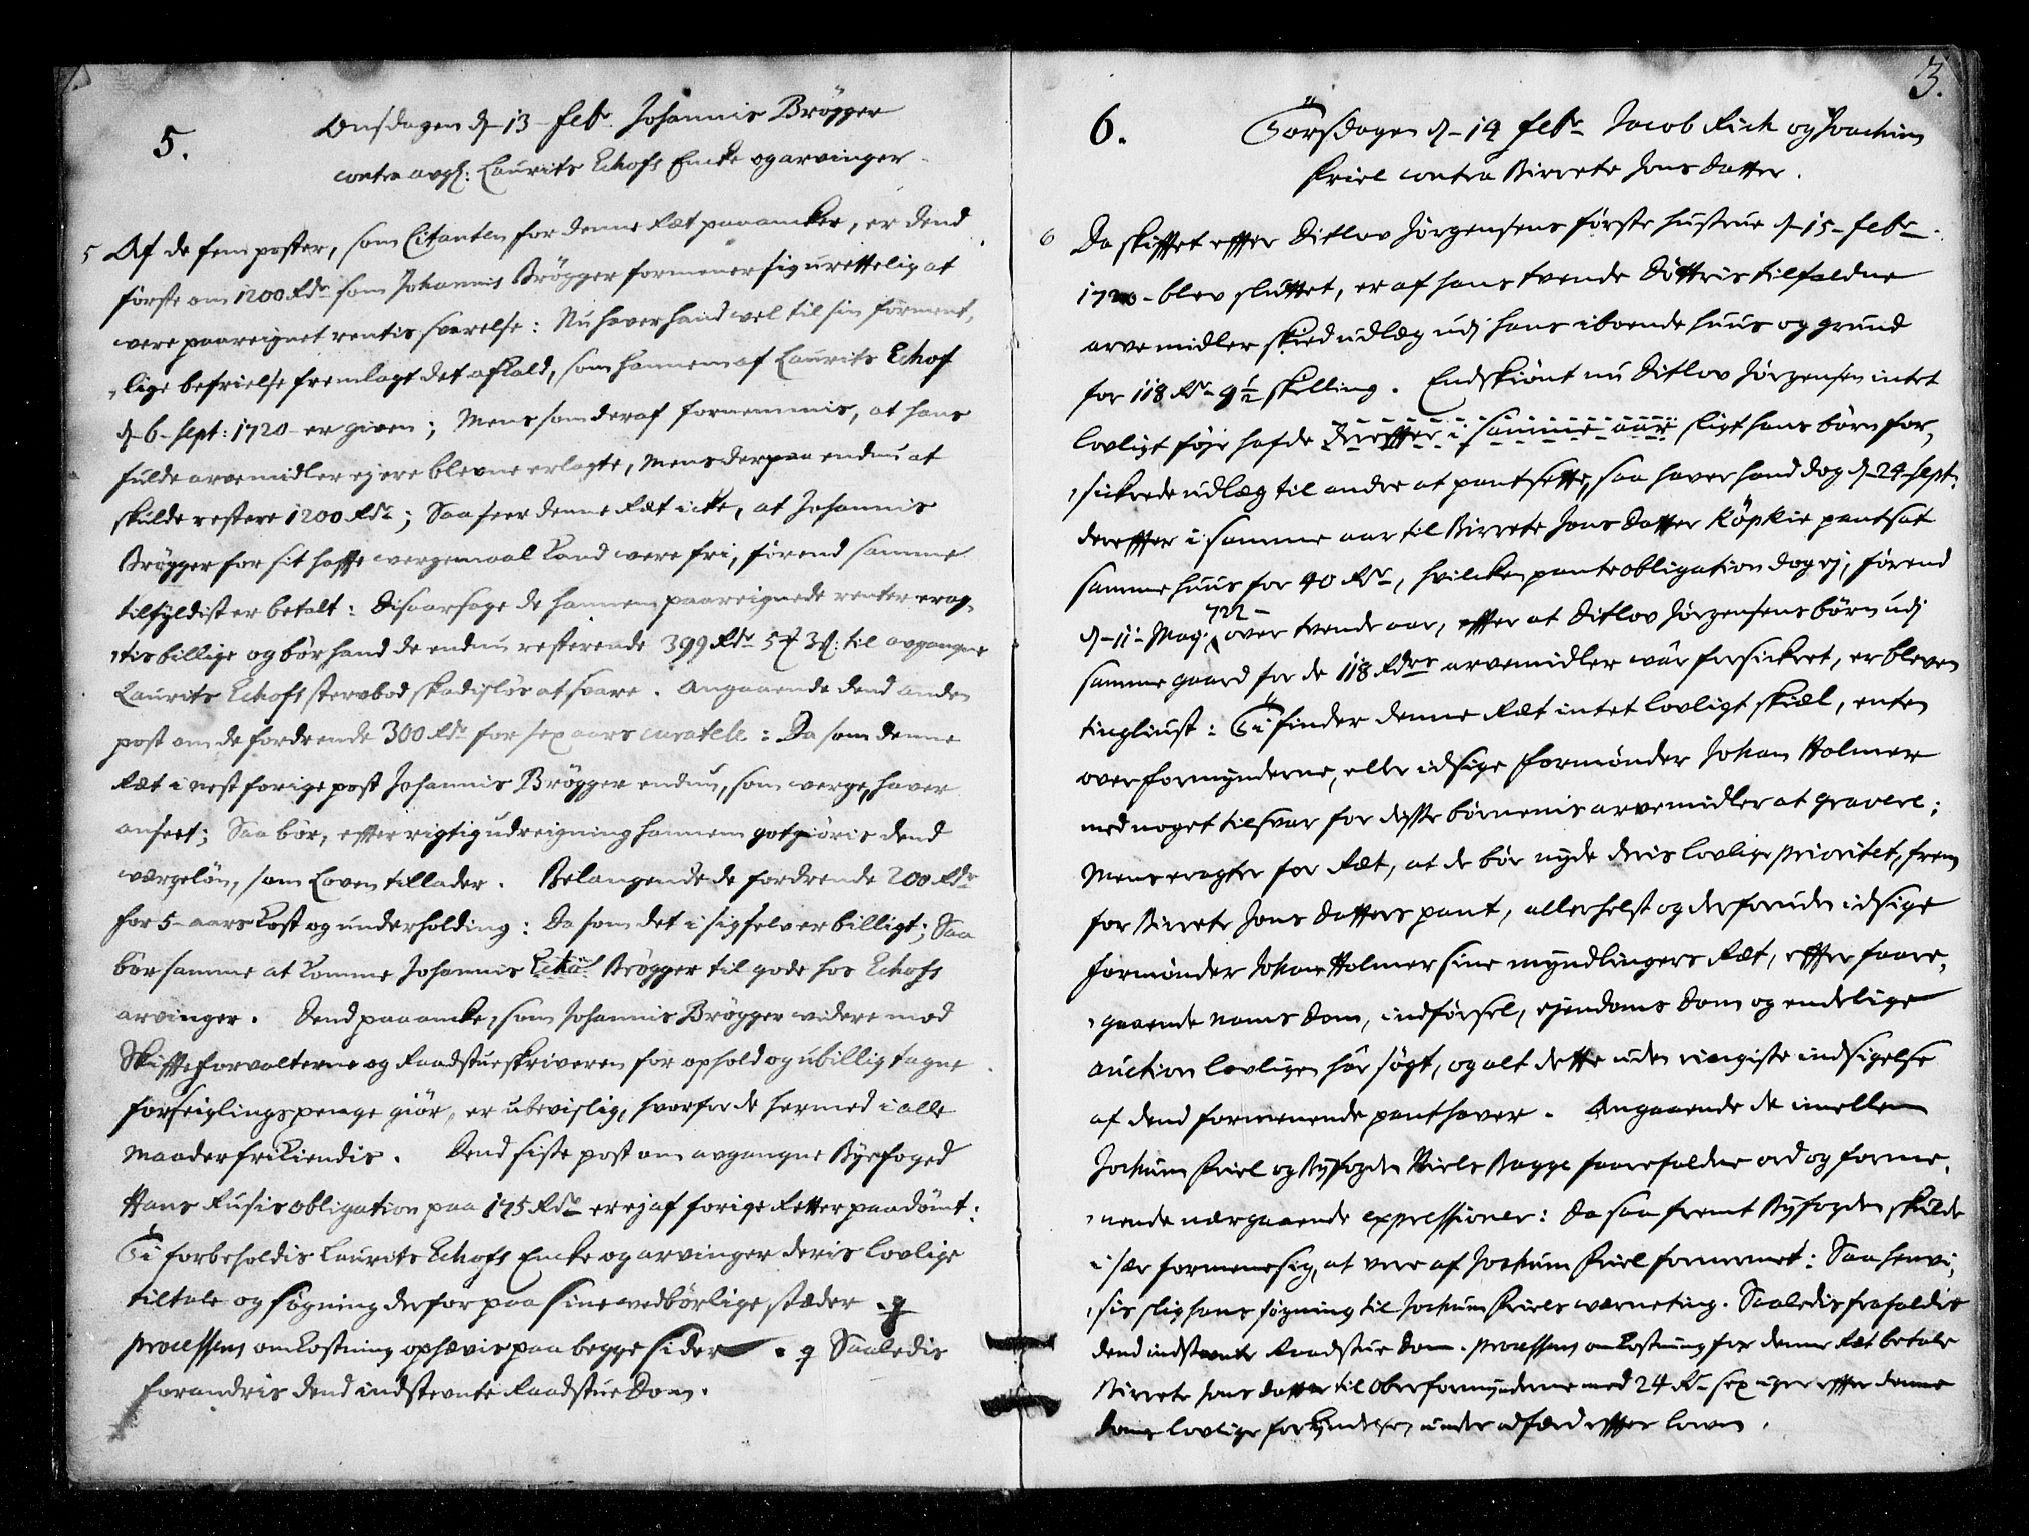 5.
Onsdagen d. 13 Febr. Johannis Brøgger
contra avgl: Laurits Echofs Encke og arvinger.
5 Af de fem poster, som Citanten for denne Ræt paaancker, er dend
første om 1200 Rdr som Johannis Brøgger formener sig urettelig at
were paareignet rentis svarelse: Nu haver hand vel til sin forment,
,lige befrielse fremlagt det afkald, som hannem af Laurits Echof
d. 6 Sept: 1720 er given; Mens som deraf fornemmis, at hans
fulde arvemidler ej ere blevne erlagte, mens derpaa endnu at
skulde restere 1200 Rdr; Saa seer denne Ræt icke, at Johannis
Brøgger for sit hafte wergemaal kand were fri, førend samme
tilfyldist er betalt: Disaarsage de hannem paareignede renter erag,
,tis billige og bør hand de endnu resterende 399 Rdr 5 3 ß: til avgangne
Laurits Echofs sterbod skadisløs at svare. Angaaende dend anden
post om de fordrende 300 Rdr for sex aars curatele: Da som denne
Ræt i nest forige post Johannis Brøgger endnu, som werge, haver
anseet; Saa bør, effter rigtig udreigning hannem gotgiøris dend
værgeløn, som Loven tillader. Belangende de fordrende 200 Rdr
for 5 aars kost og underholding: Da som det i sig selv er billigt; Saa
bør samme at komme Johannis Echof Brøgger til gode hos Echofs
arvinger. Dend paaancke, som Johannis Brøgger videre mod
Skifteforvalterne og Raadstueskriveren for ophold og ubillig tagne
forseiglingspenge giør, er ubevislig, hvorfor de hermed i alle
maader frikiendis. Dend siste post om avgangne Byefoged
Hans Rusis obligation paa 175 Rdr er ej af forige Retter paadømt:
Ti forbeholdis Laurits Echofs Encke og arvinger deris lovlige
tiltale og søgning derfor paa sine vedbørlige stæder.
Processens omkostning ophævis paa begge sider. Saaledis
forandris dend indstevnte Raadstue Dom.
3.
6.
Torsdagen d. 14 Febr. Jacob Rich og Joachim
Friel contra Birrete Jons Datter.
6 Da skifftet effter Ditlov Jørgensens første hustrue d. 15 Febr.
1720 blev sluttet, er af hans tvende Døttris tilfaldne
arvemidler skied udlæg udj hans iboende huus og grund
for 118 Rdr 9½ skilling. Endskiønt nu Ditlov Jørgensen intet
lovligt føje hafde dereffter i samme aar sligt hans børn for,
,sickrede udlæg til andre at pantsette, saa haver hand dog d. 24 Sept:
dereffter i samme aar til Birrete Jons Datter Køpkie pantsat
samme huus for 40 Rdr, hvilcken panteobligation dog ej, førend
d. 11 Maj: 722 over tvende aar, effter at Ditlov Jørgensens børn udj
samme gaard for de 118 Rdrs arvemidler var forsickret, er bleven
tingliust: Ti finder denne Ræt intet lovligt skiæl, enten
overformynderne, eller idsige formønder Johan Holmer
med noget tilsvar for disse børnenis arvemidler at gravere;
Mens eragter for Ræt, at de bør nyde deris lovlige prioritet, frem
for Birrete Jons Datters pant, allerhelst og derforuden idsige
formønder Johan Holmer sine myndlingers Ræt, effter foore,
,gaaende nams dom, indførsel, ejendoms dom og endelige
auction lovligen har søgt, og alt dette uden ringiste indsigelse
af dend formenende panthaver. Angaaende de imellem
Jochum Friel og Byfogden Niels Bagge forefaldne ord og forme,
,nende nærgaaende expressioner: Da saa fremt Byfogden skulde
i sær formene sig, at vere af Jochum Friel fornermet: Saa henvi,
,sis slig hans søgning til Jochum Friels værneting. Saaledis frafaldis
dend indstevnte Raadstue Dom. Processens omkostning for denne Ræt betale
Birrete Jons datter til Oberformynderne med 24 Rdr sex uger effter denne
doms lovlige forkyndelse, under adfærd effter loven.